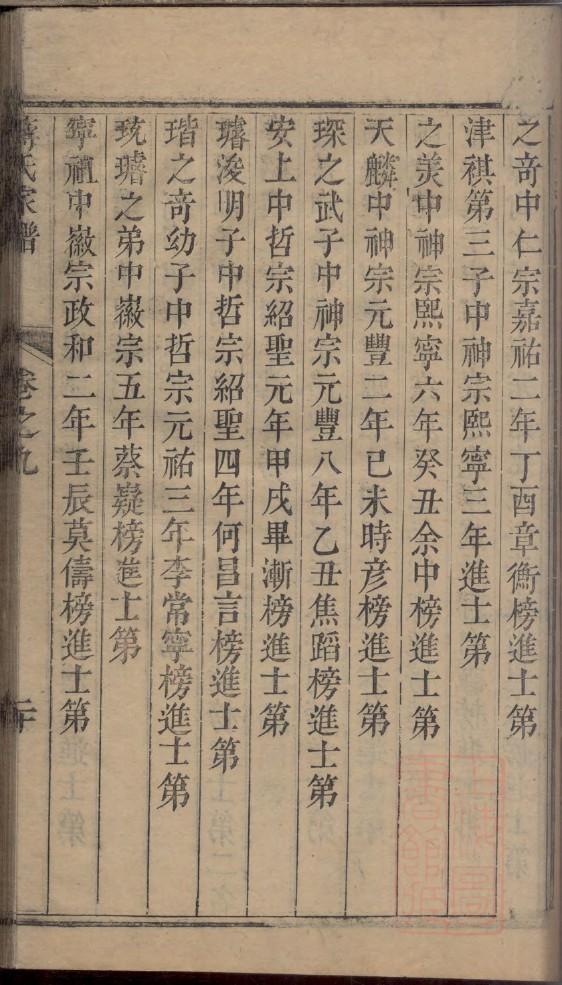 之奇中仁宗嘉祐二年丁酉章衡榜進士第
津祺第三子中神宗熙寧三年進士第
之美中神宗熙寧六年癸丑余中榜進士第
天麟中神宗元豐二年已未時彥榜進士第
琛之武子中神宗元豐八年乙丑焦蹈榜進士第
安上中哲宗紹聖元年甲戌畢漸榜進士第
璿浚明子中哲宗紹聖四年何昌言榜進士第
瑎之奇幼子中哲宗元祐三年李常寧榜進士第
珫璿之弟中徽宗五年蔡嶷榜進士第
寧祖中徽宗政和二年壬辰莫儔榜進士第
蔣氏家譜 卷之九 二十